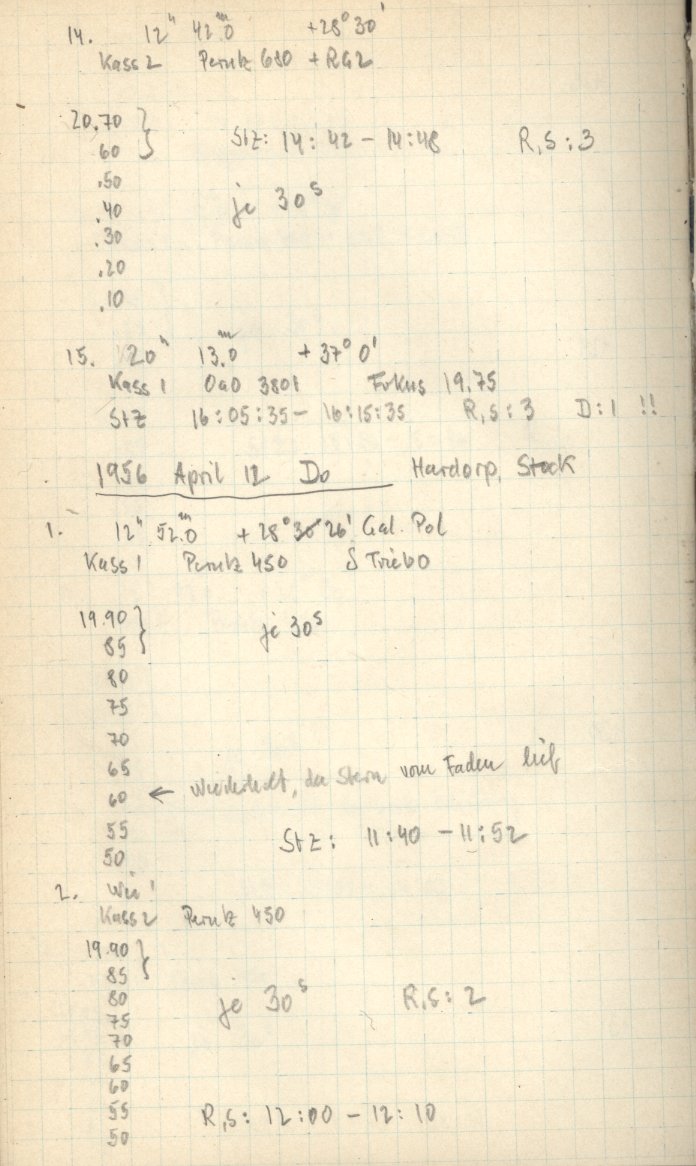 14. 12ʰ 42ᵐ.0 +28° 30'
Kass 2 Perutz 680 + RG2
20.70 }
60 } Stz: 14:42 – 14:48 R,S:3
.50
.40 je 30ˢ
.30
.20
.10
15. 20ʰ 13ᵐ.0 +37° 0'
Kass 1 0a0 3801 Fokus 19.75
Stz 16:05:35 – 16:15:35 R,S:3 D:1 !!
1956 April 12 Do Hardorp, Stock
1. 12ʰ 52ᵐ.0 +28° 26' Gal. Pol
Kass 1 Perutz 450
19.90 } je 30ˢ
85 }
80
75
70
65
60 ← Wiederholt, da Stern vom Faden lief
55 Stz: 11:40 – 11:52
50
2. Wie 1
Kass 2 Perutz 450
19.90 }
85 }
80 je 30ˢ R,S: 2
75
70
65
60
55 R,S: 12:00 – 12:10
50